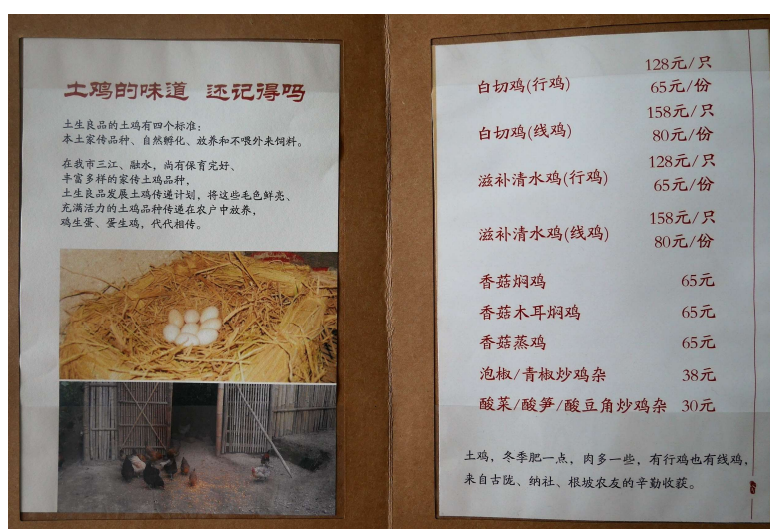 土鸡的味道 还记得吗
土生良品的土鸡有四个标准：
本土家传品种、自然孵化、放养和不喂外来饲料。
在我市三江、融水，尚有保育完好、
丰富多样的家传土鸡品种，
土生良品发展土鸡传递计划，将这些毛色鲜亮、
充满活力的土鸡品种传递在农户中放养，
鸡生蛋、蛋生鸡，代代相传。
128元/只
白切鸡(行鸡) 65元/份
158元/只
白切鸡(线鸡) 80元/份
128元/只
滋补清水鸡(行鸡) 65元/份
158元/只
滋补清水鸡(线鸡) 80元/份
香菇焖鸡 65元
香菇木耳焖鸡 65元
香菇蒸鸡 65元
泡椒/青椒炒鸡杂 38元
酸菜/酸笋/酸豆角炒鸡杂 30元
土鸡，冬季肥一点，肉多一些，有行鸡也有线鸡，
来自古陇、纳社、根坡农友的辛勤收获。